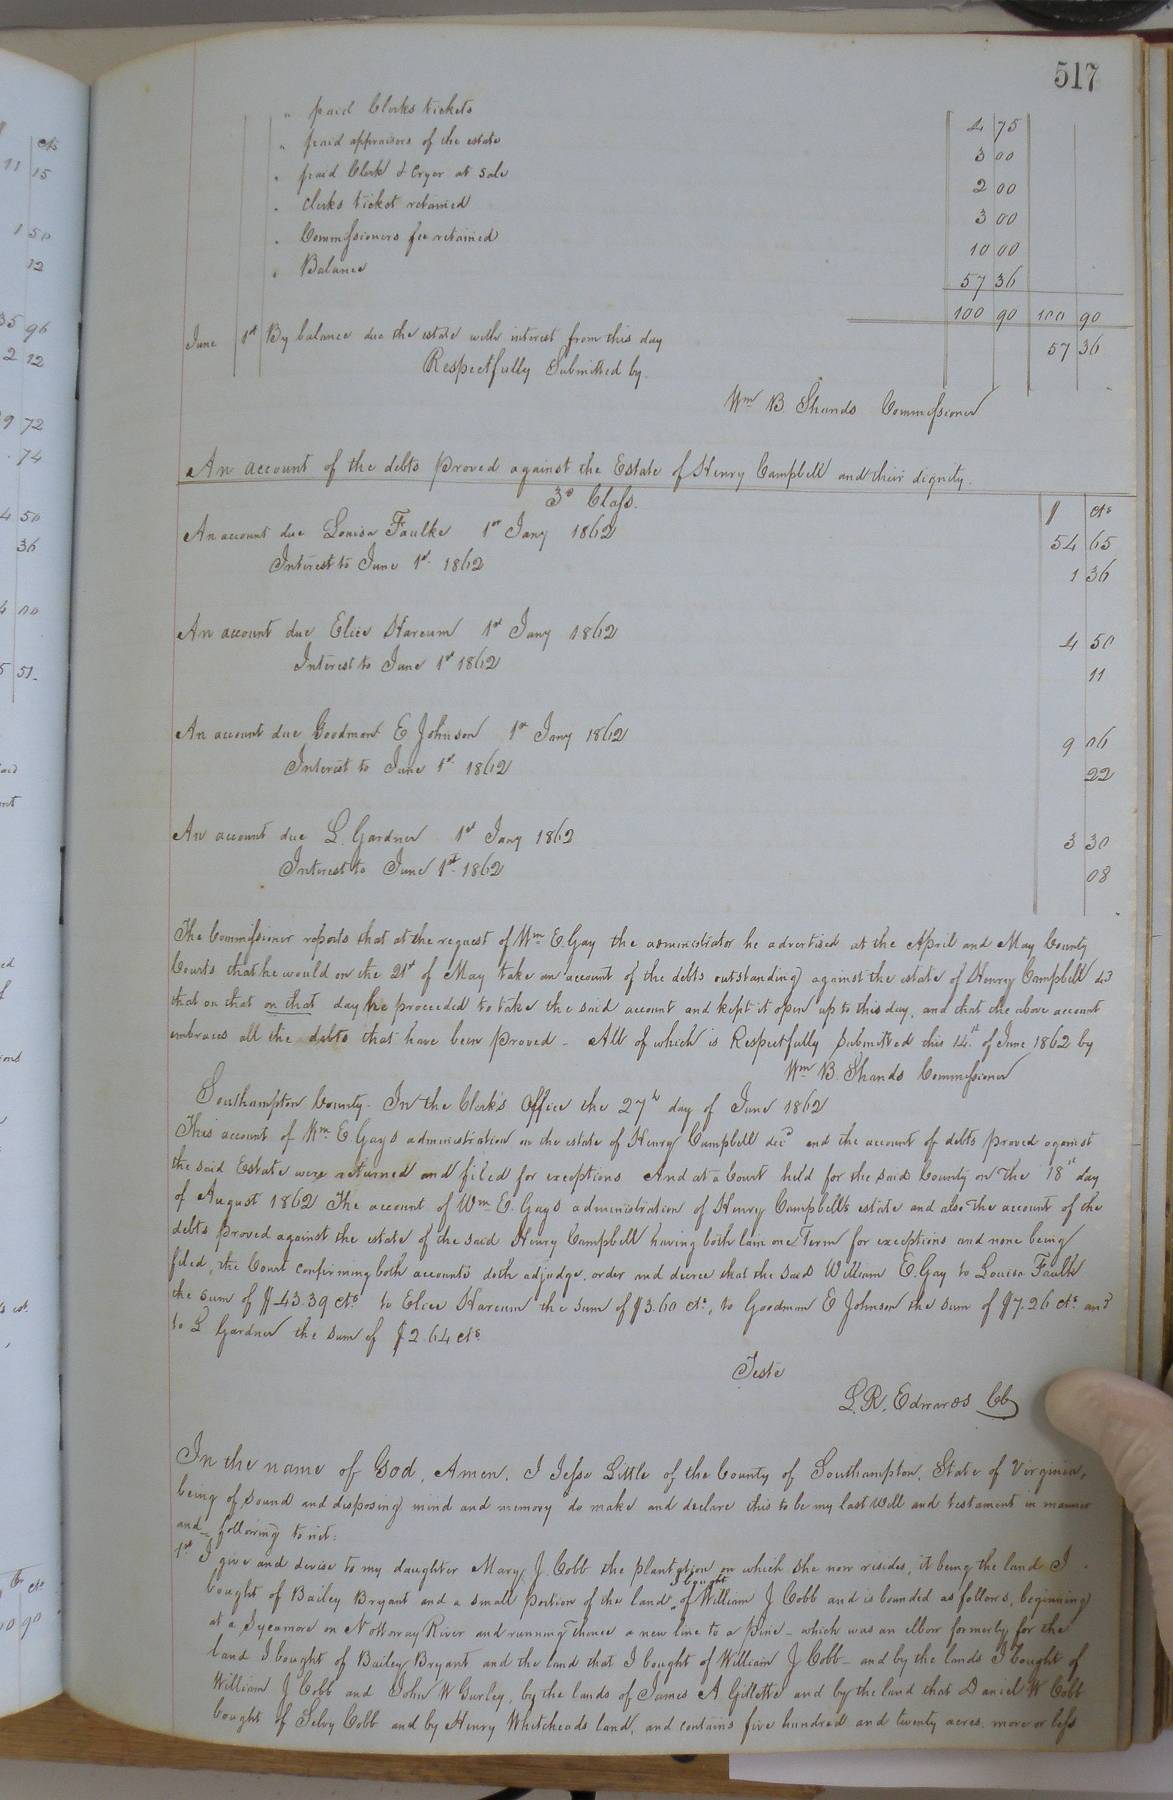 517
" paid Clerks tickets 4 75
" paid appraisers of the estate 3 00
" paid Clerk & Cryer at sale 2 00
" Clerks ticket retained 3 00
" Commissioners fee retained 10 00
" Balance 57 36
100 90 100 90
June 1st By balance due the estate with interest from this day 57 36
Respectfully Submitted by
Wm B. Shands Commissioner
An account of the debts proved against the Estate of Henry Campbell and their dignity.
3d Class. $ cts
An account due Louisa Faulke 1st Jany 1862 54 65
Interest to June 1st 1862 1 36
An account due Elice Harcum 1st Jany 1862 4 50
Interest to June 1st 1862 11
An account due Goodmont E Johnson 1st Jany 1862 9 06
Interest to June 1st 1862 22
An account due L. Gardner 1st Jany 1862 3 30
Interest to June 1st 1862 08
The Commissioner reports that at the request of Wm E. Gay the administrator he advertised at the April and May County
Courts that he would on the 21st of May take an account of the debts outstanding against the estate of Henry Campbell
that on that on that day he proceeded to take the said account and kept it open up to this day, and that the above account
embraces all the debts that have been proved - All of which is Respectfully Submitted this 14th of June 1862 by
Wm B. Shands Commissioner
Southampton County - In the Clerk's Office the 27th day of June 1862
This account of Wm E Gays administration on the estate of Henry Campbell decd and the account of debts proved against
the said Estate were returned and filed for exceptions And at a Court held for the said County on the 18th day
of August 1862 The account of Wm E. Gays administration of Henry Campbells estate and also the account of the
debts proved against the estate of the said Henry Campbell having both lain one Term for exceptions and none being
filed, the Court confirming both accounts doth adjudge, order and decree that the said William E. Gay to Louisa Faulk
the sum of $43.39 cts to Elice Harcum the sum of $3.60 cts, to Goodman E Johnson the sum of $7.26 cts and
to L Gardner the sum of $2.64 cts
Teste
L. R. Edwards CC
In the name of God, Amen. I Jesse Little of the County of Southampton, State of Virginia,
being of sound and disposing mind and memory do make and declare this to be my last will and testament in manner
and following to wit:
1st I give and devise to my daughter Mary J. Cobb the plantation on which she now resides, it being the land I
bought of Bailey Bryant and a small portion of the land I bought of William J Cobb and is bounded as follows, beginning
at a Sycamore on Nottoway River and running thence a new line to a pine - which was an elbow formerly for the
land I bought of Bailey Bryant and the land that I bought of William J Cobb - and by the lands I bought of
William J Cobb and John W Gurley, by the lands of James A Gillette and by the land that Daniel W Cobb
bought of Selvy Cobb and by Henry Whitcheads land, and contains five hundred and twenty acres more or less